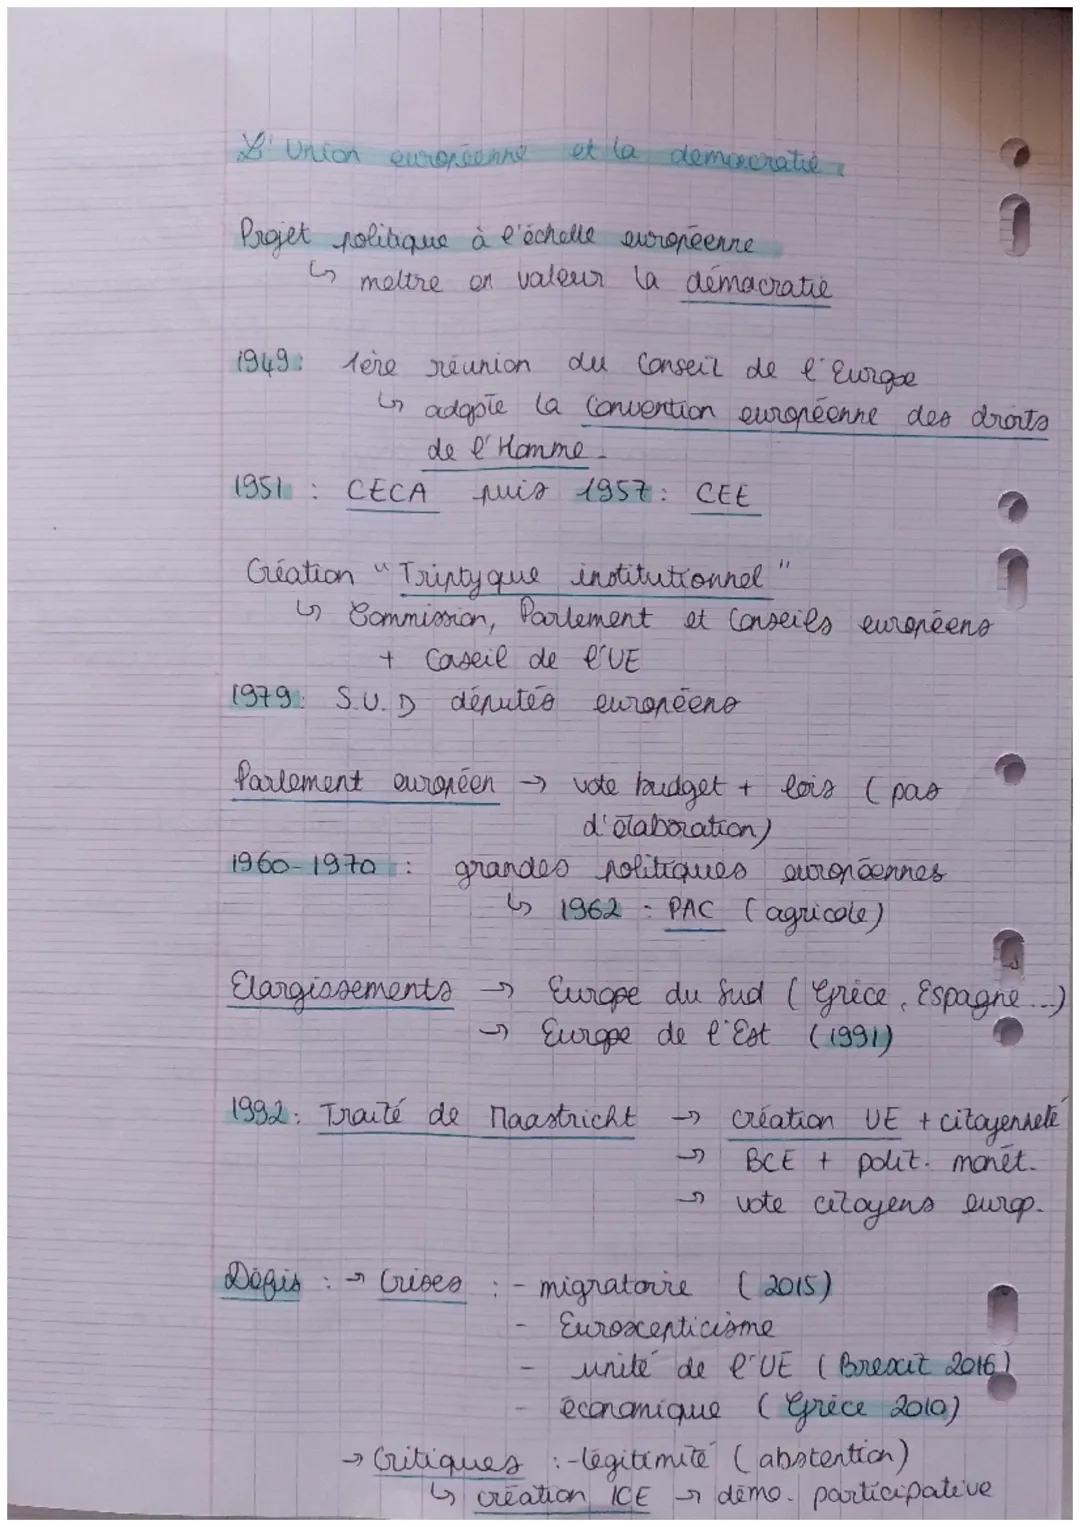 L'Union européenne et la démocratie
Projet politique à l'échelle européenne
↳ mettre en valeur la démocratie
1949: 1ère réunion du Conseil de l'Europe
↳ adopte la Convention européenne des droits
de l'Homme.
1951 : CECA puis 1957 : CEE
Création "Triptyque institutionnel"
↳ Commission, Parlement et Conseils européens
+ Caseil de l'UE
1979: S.U.D députés européens
Parlement européen → vote budget + lois (pas
d'élaboration)
1960-1970 : grandes politiques européennes
↳ 1962 : PAC (agricole)
Elargissements → Europe du Sud (Grèce, Espagne...)
→ Europe de l'Est (1991)
1992: Traité de Maastricht → création UE + citoyenneté
→ BCE + polit. monét.
→ vote citoyens europ.
Défis : → Crises : - migratoire (2015)
- Euroscepticisme
- unité de l'UE (Brexit 2016)
- économique (Grèce 2010)
→ Critiques : - légitimité (abstention)
↳ création ICE → démo. participative